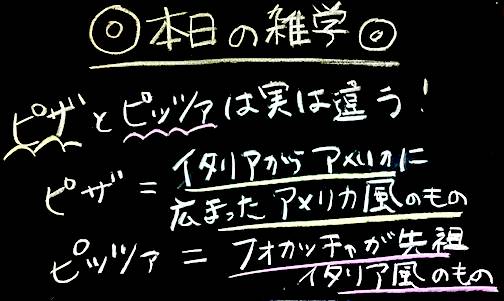 ◎本日の雑学◎
ピザとピッツァは実は違う!
ピザ = イタリアからアメリカに
広まったアメリカ風のもの
ピッツァ = フォカッチャが先祖
イタリア風のもの